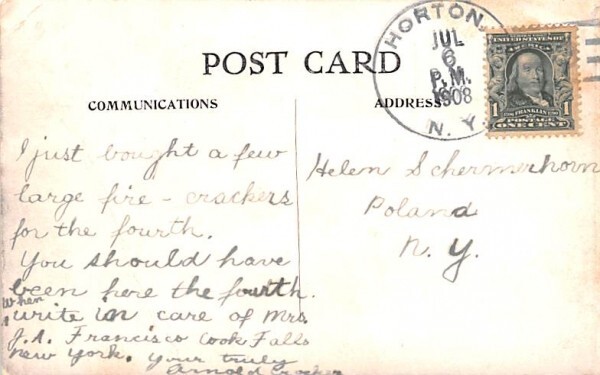 POST CARD
COMMUNICATIONS
ADDRESS
HORTON,
JUL
6
P.M.
1908
N. Y.
UNITED STATES OF
AMERICA
1 FRANKLIN 1
POSTAGE
ONE CENT
I just bought a few
large fire - crackers
for the fourth.
You should have
been here the fourth.
When
write in care of Mrs.
J. A. Francisco Cook Falls
New York. Your truly
Arnold Crocker
Helen Schermerhorn
Poland
N. Y.